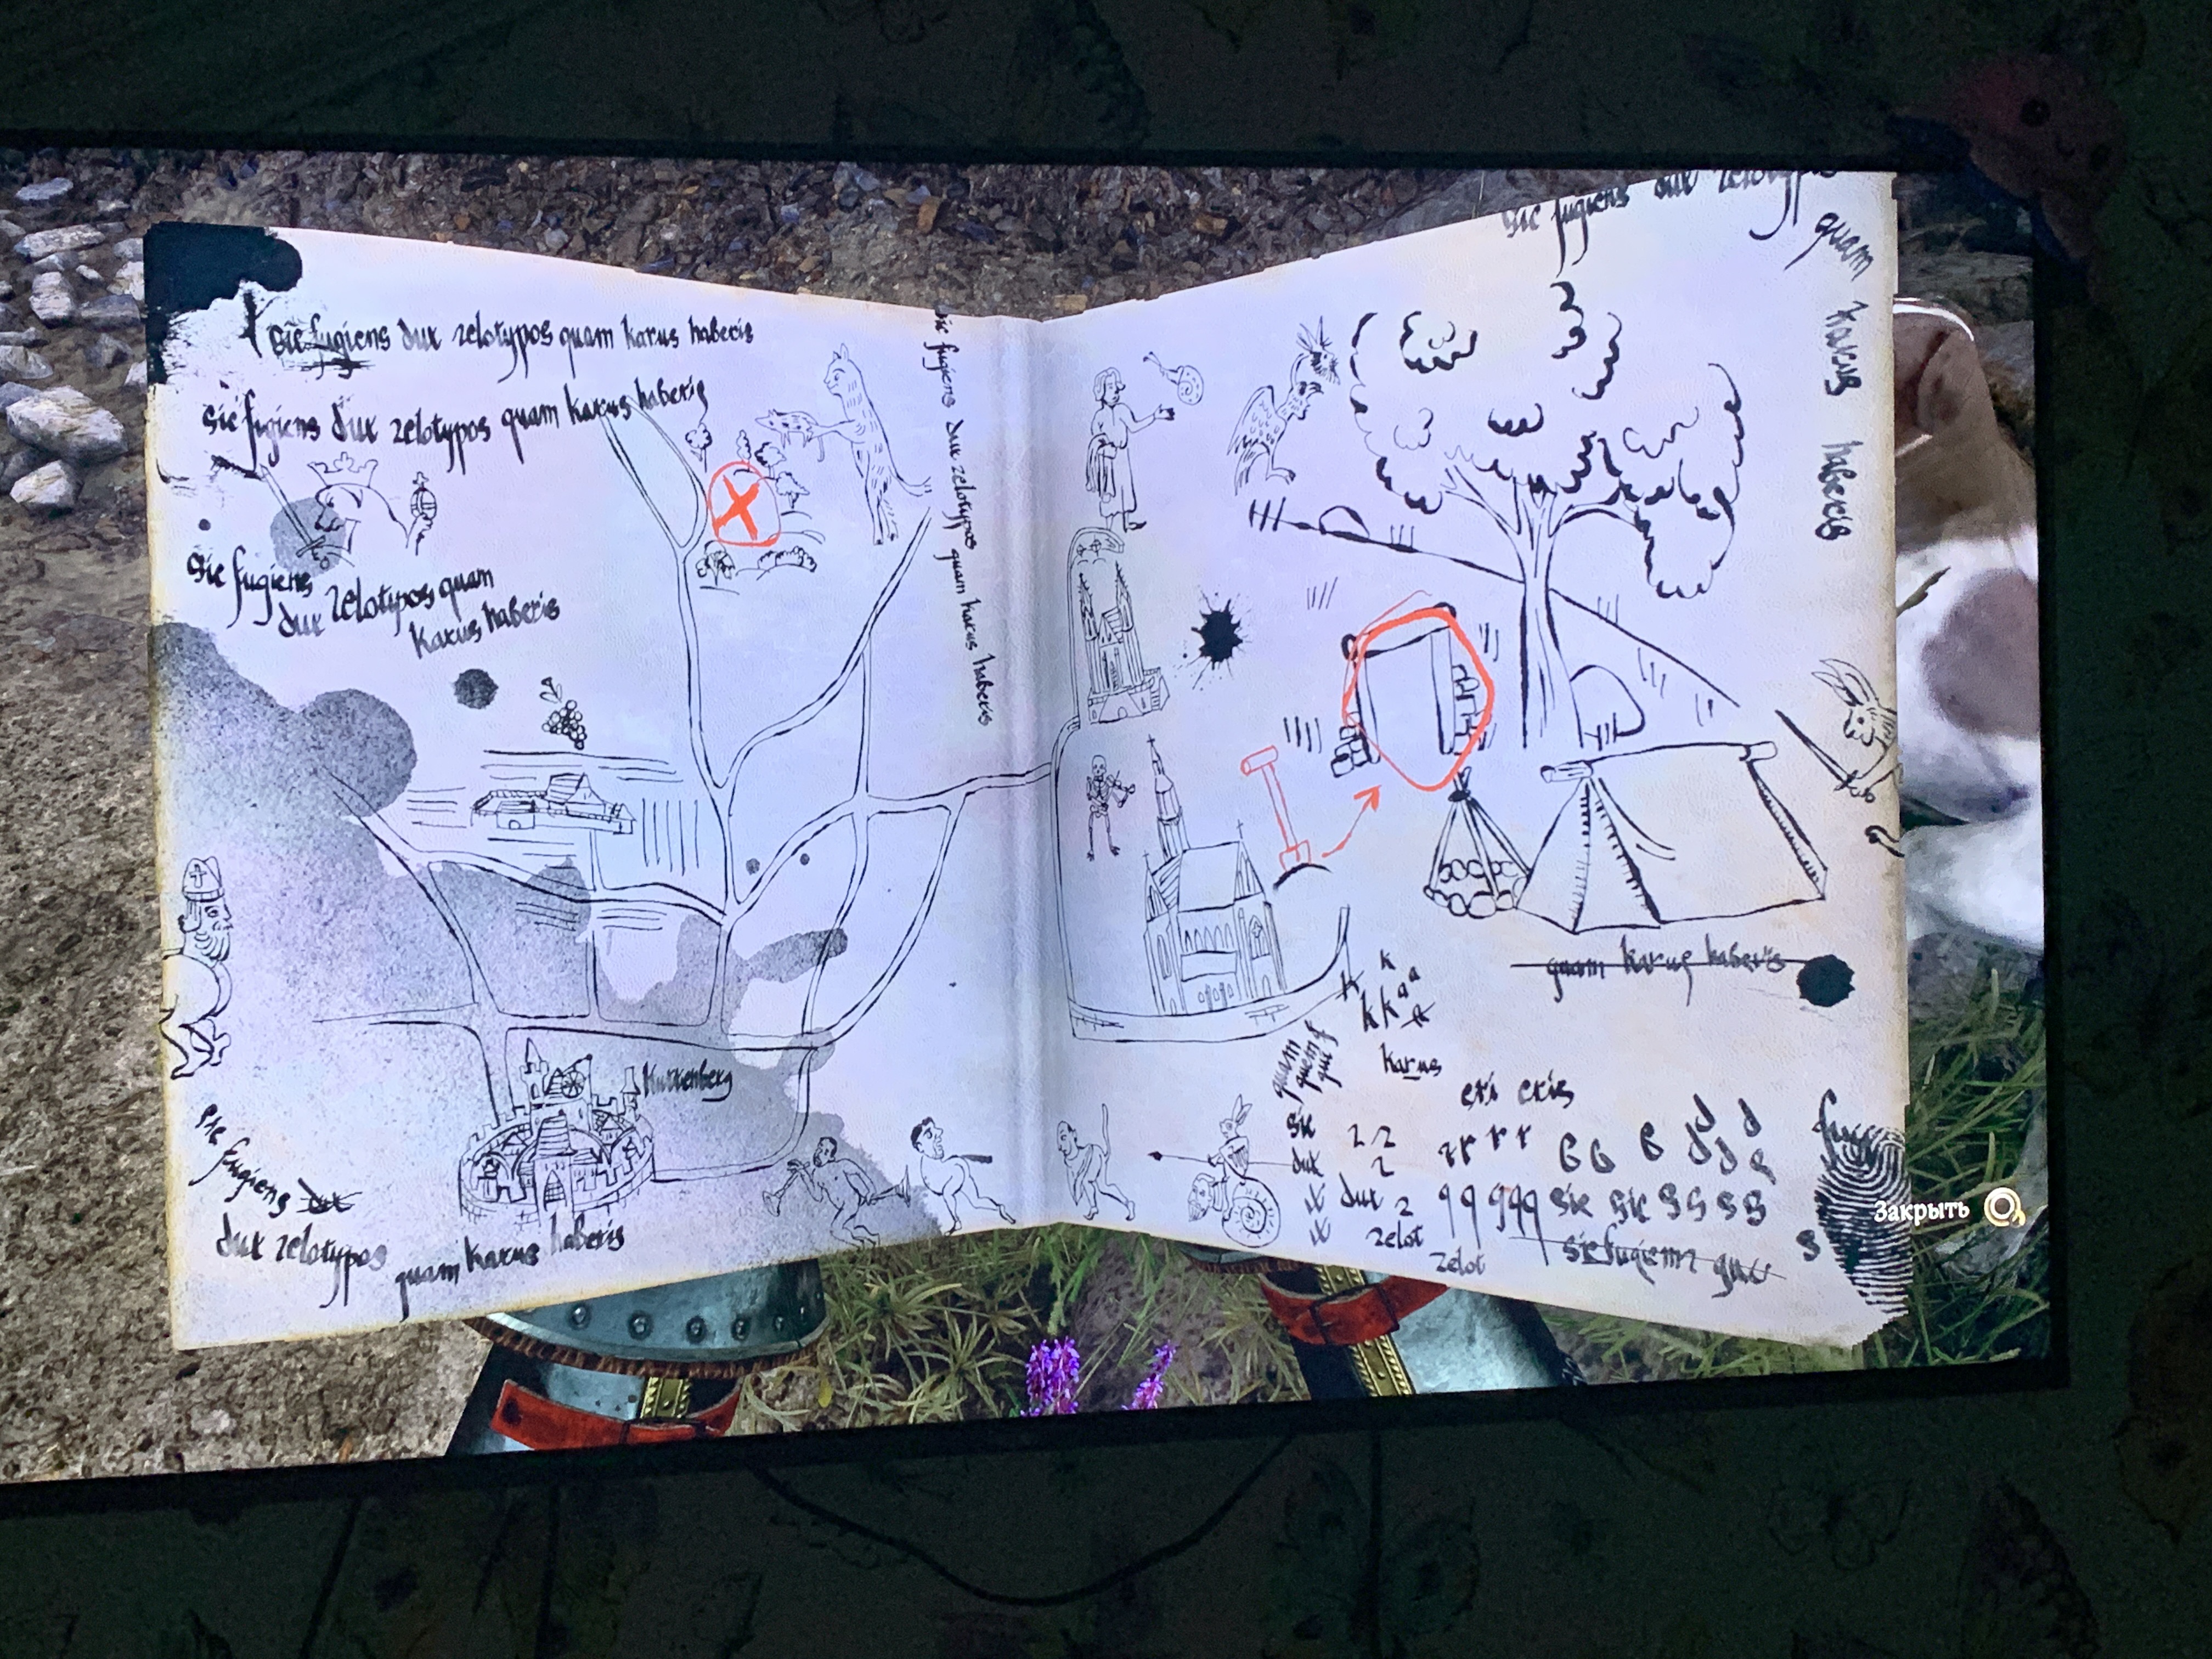 Sic fugiens dux zelotypos quam karus haberis
Sic fugiens dux zelotypos quam karus haberis
Sic fugiens
dux zelotypos quam
karus haberis
Kuttenberg
Sic fugiens dux
dux zelotypos
quam karus haberis
Sic fugiens dux zelotypos quam karus haberis
Sic fugiens dux zelotypos
quam karus haberis
quam karus haberis
k
k a a
k k
karus
quam
quem
qui
eri eris
sic 2 2 r r r r
dux 2
dux 2 q q q q q sic sic s s s s
zelot
zelot
sic fugiens
Закрыть